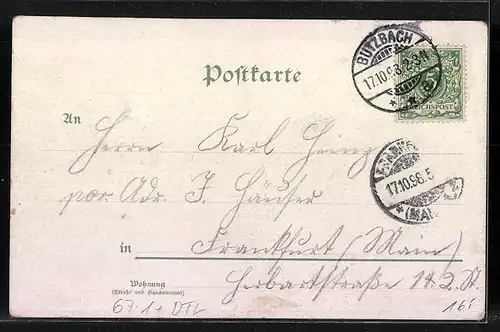 Postkarte
BUTZBACH
17.10.98.2-3N
5
REICHSPOST
An
Herrn Karl Heinz
per Adr. J. Häuser
FRANKF
17.10.98.5
(MAIN)
in Frankfurt (Main)
Wohnung
(Straße und Hausnummer)
Herbartstraße 14 2. St.
67.1+ DTL
165